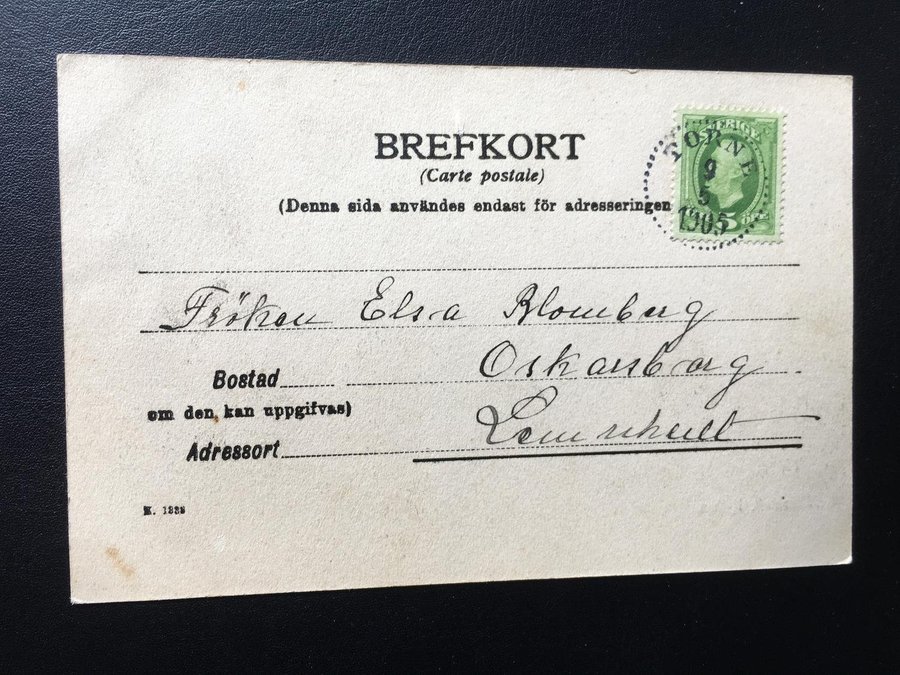 BREFKORT
(Carte postale)
(Denna sida användes endast för adresseringen
SVERIGE
TORNE
9
5
1905
5 ÖRE
Fröken Elsa Blomberg
Oskarsborg
Bostad
om den kan uppgifvas)
Lemnhult
Adressort